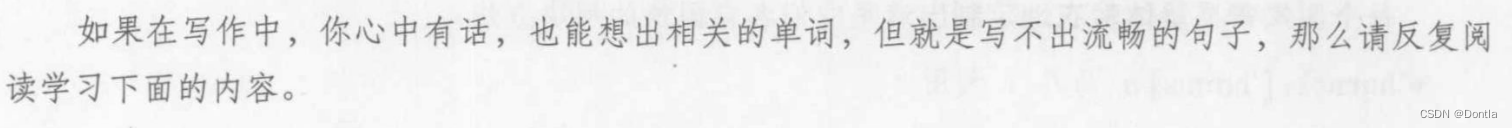 如果在写作中，你心中有话，也能想出相关的单词，但就是写不出流畅的句子，那么请反复阅
读学习下面的内容。
CSDN @Dontla